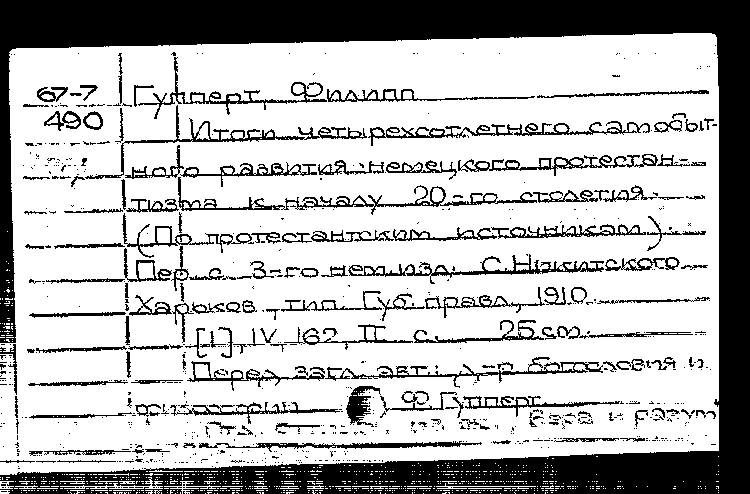 67-7 Гупперт, Филипп
490 Итоги четырехсотлетнего самобыт-
ного развития немецкого протестан-
тизма к началу 20-го столетия.
(По протестантским источникам).
Пер. с 3-го нем. изд. С. Никитского
Харьков, тип. Губ. правл., 1910.
[1], IV, 162, II с. 25 см.
Перед загл. авт.: д-р богословия и
философии Ф. Гупперт
Отд. оттиск из ж. "Вера и разум"